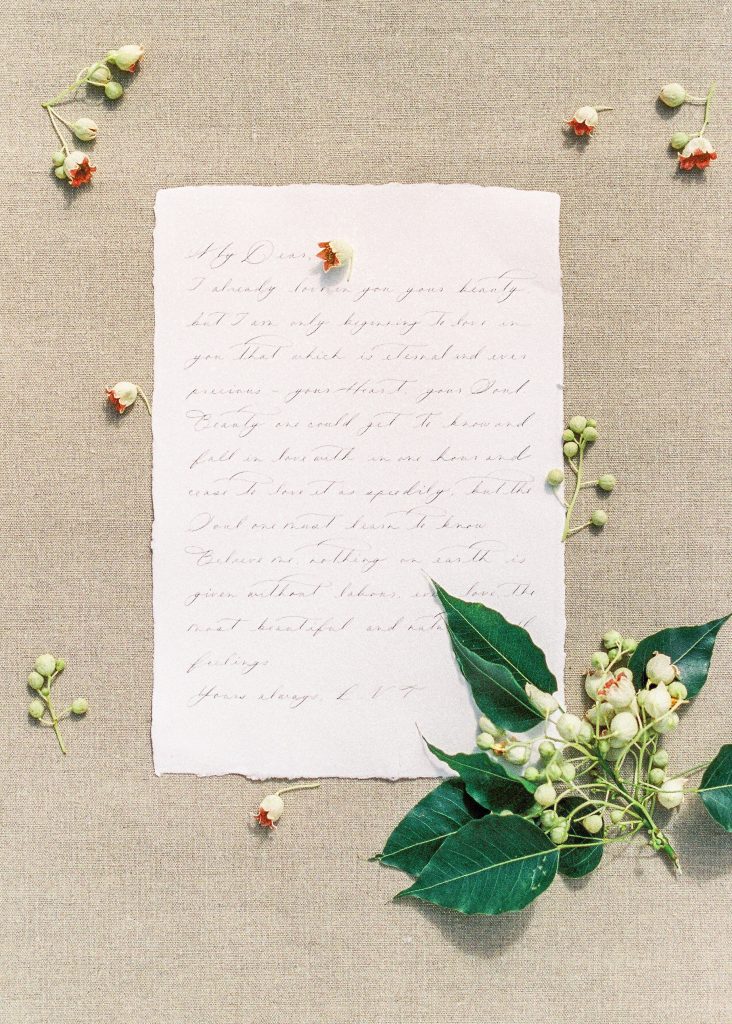 My Dear,
I already love in you your beauty
but I am only beginning to love in
you that which is eternal and ever
precious – your Heart, your Soul
Beauty one could get to know and
fall in love with in one hour and
cease to love it as speedily; but the
Soul one must learn to know
Believe me, nothing on earth is
given without labour, even love, the
most beautiful and
feelings
Yours always, L. N T